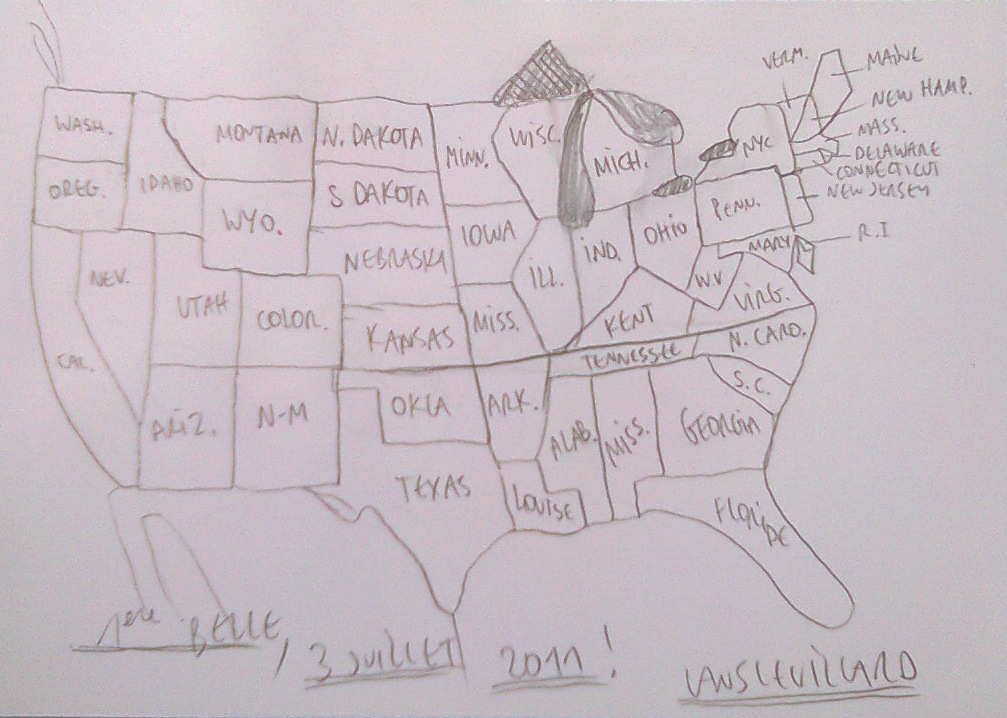 VERM.
MAINE
NEW HAMP.
MASS.
DELAWARE
CONNECTICUT
NEW JERSEY
R.I
WASH.
MONTANA
N. DAKOTA
MINN.
WISC.
MICH.
NYC
OREG.
IDAHO
WYO.
S DAKOTA
IOWA
ILL.
IND.
OHIO
PENN.
MARY
NEV.
UTAH
COLOR.
NEBRASKA
KANSAS
MISS.
KENT
W.V
VIRG.
CAL.
TENNESSEE
N. CARO.
S.C.
ARIZ.
N-M
OKLA
ARK.
ALAB.
MISS.
GEORGIA
TEXAS
LOUISE
FLORIDE
1ere BELLE, 3 JUILLET 2011 !
LANSLEVILLARD